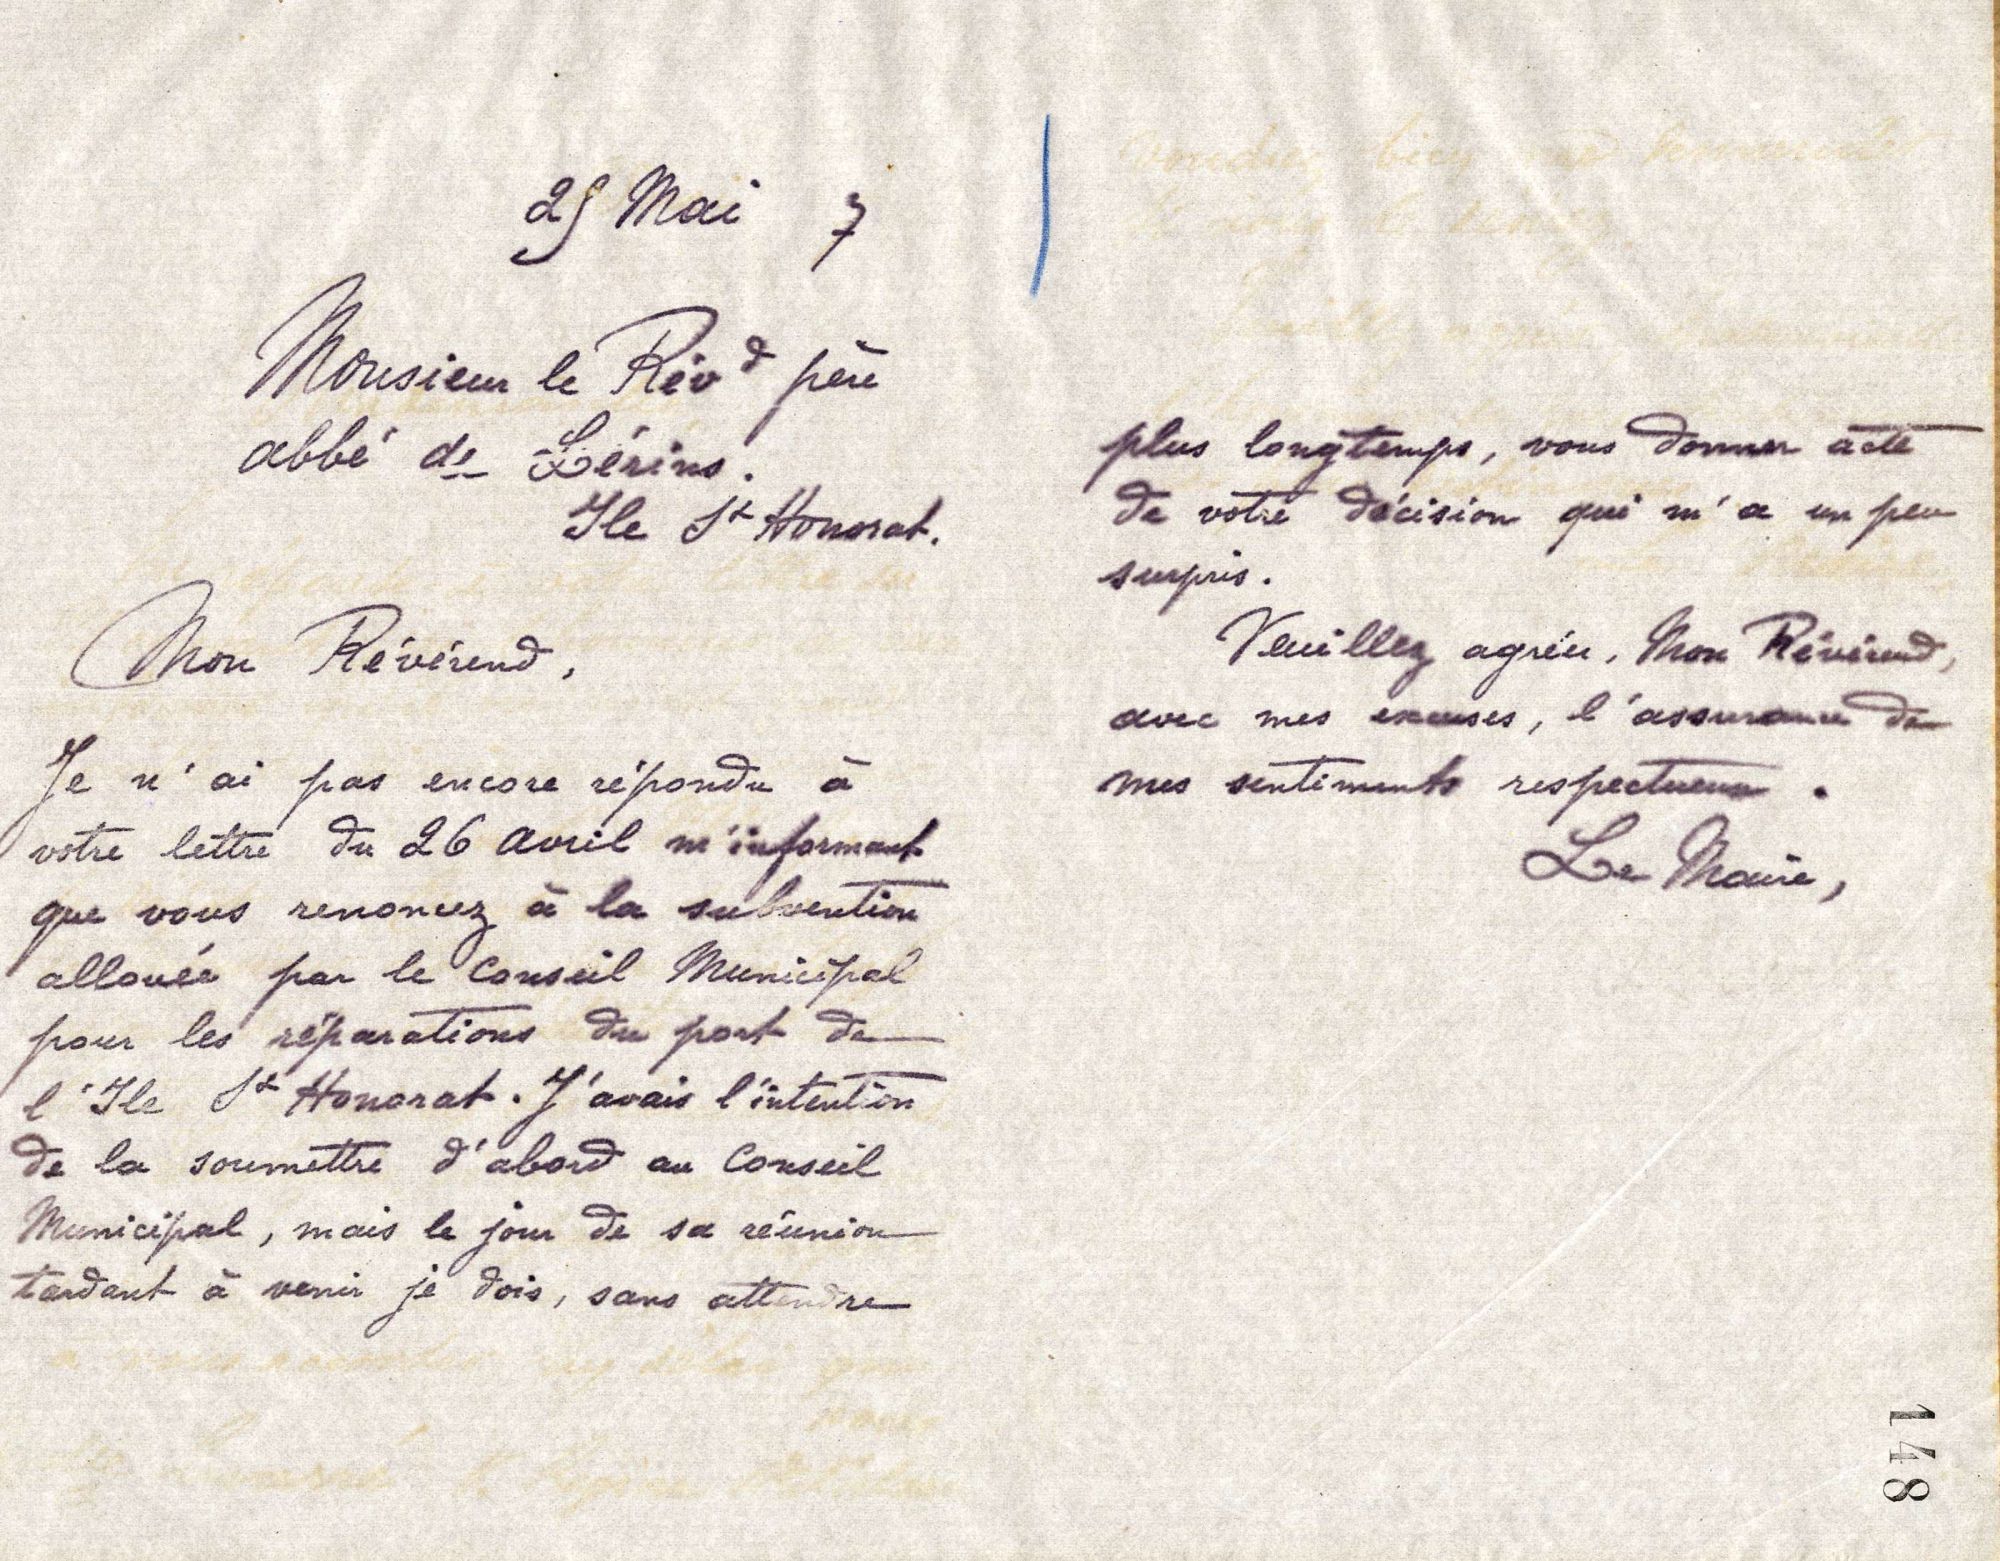 29 Mai 7
Monsieur le Rév^d père
abbé de Lérins.
Ile S^t Honorat.
Mon Révérend,
Je n'ai pas encore répondu à
votre lettre du 26 avril m'informant
que vous renoncez à la subvention
allouée par le Conseil Municipal
pour les réparations du port de
l'Ile S^t Honorat. J'avais l'intention
de la soumettre d'abord au Conseil
Municipal, mais le jour de sa réunion
tardant à venir je dois, sans attendre
plus longtemps, vous donner acte
de votre décision qui m'a un peu
surpris.
Veuillez agréer, Mon Révérend,
avec mes excuses, l'assurance de
mes sentiments respectueux.
Le Maire,
148